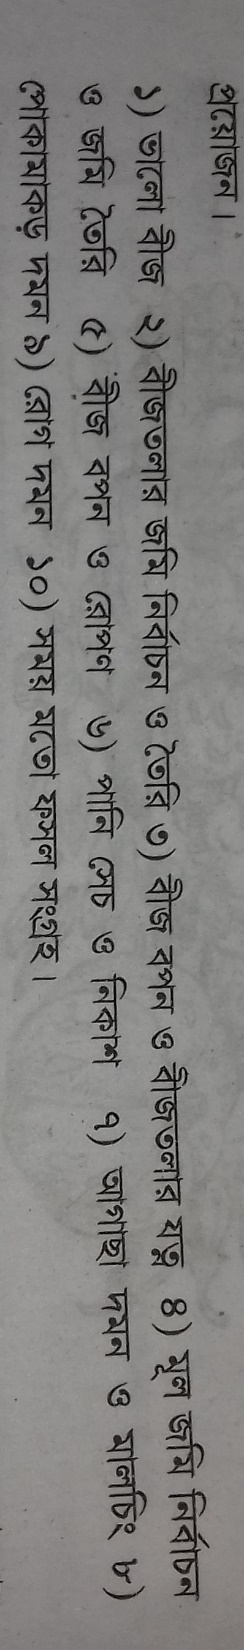 প্রয়োজন।
১) ভালো বীজ ২) বীজতলার জমি নির্বাচন ও তৈরি ৩) বীজ বপন ও বীজতলার যত্ন ৪) মূল জমি নির্বাচন
ও জমি তৈরি ৫) বীজ বপন ও রোপণ ৬) পানি সেচ ও নিকাশ ৭) আগাছা দমন ও মালচিং ৮)
পোকামাকড় দমন ৯) রোগ দমন ১০) সময় মতো ফসল সংগ্রহ।